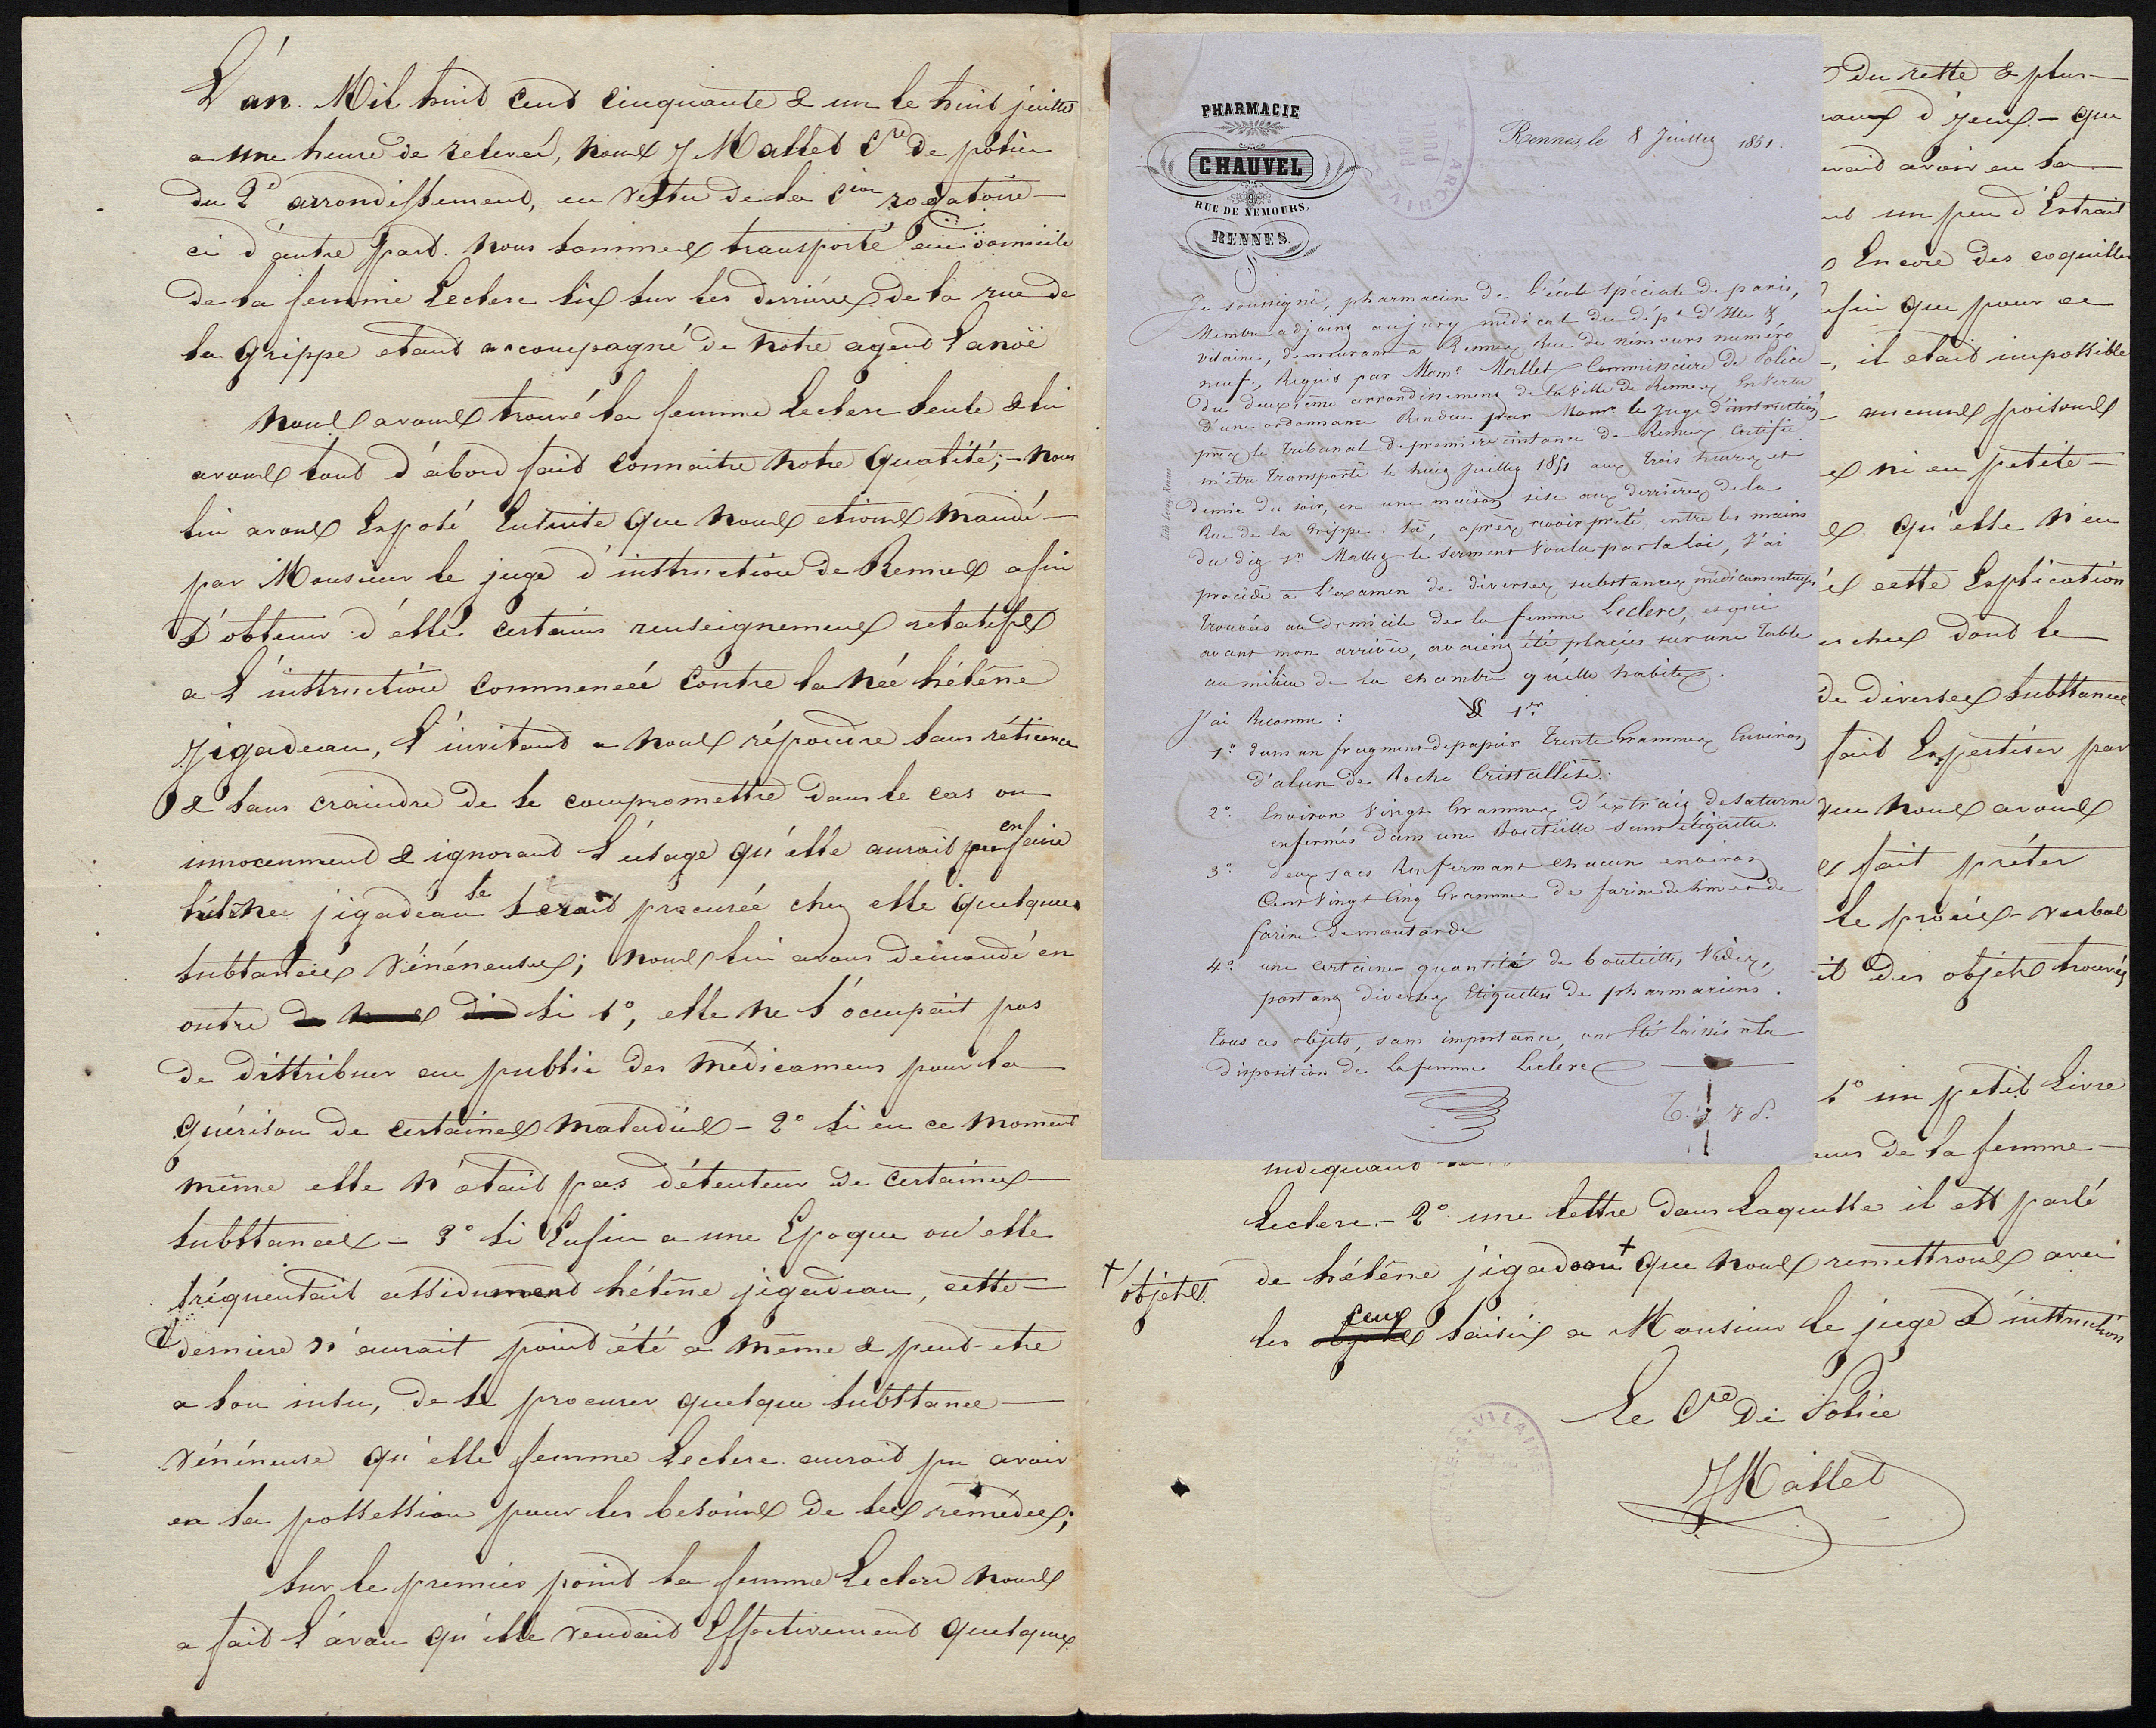 L'an Mil huit cent cinquante & un le huit juillet
a une heure de relevée, nous J Mallet Cre de police
du 2e arrondissement, en vertu de la Cion rogatoire
ci d'autre part. nous sommes transporté au domicile
de la femme Leclerc sis sur les derrières de la rue de
la Grippe etant accompagné de notre agent Lanoë
nous avons trouvé la femme Leclerc seule & lui
avons tout d'abord fait connaitre notre qualité; - nous
lui avons Exposé Ensuite que nous etions mandé
par Monsieur le juge d'instruction de Rennes afin
d'obtenir d'elle certains renseignemens relatifs
a l'instruction commencée contre la née hélène
jigadeau, l'invitant a nous répondre sans réticence
& sans craindre de se compromettre dans le cas ou
innocemment & ignorant l'usage qu'elle aurait pu en faire
hélène jigadeau se serait procurée chez elle quelques
substances vénéneuses; nous lui avons demandé en
outre si 1°, elle ne s'occupait pas
de distribuer au public des médicamens pour la
guérison de certaines maladies - 2° si en ce moment
même elle n'était pas détenteur de certaines
substances - 3° si Enfin a une Epoque ou elle
fréquentait assidument hélène jigadeau, cette
derniere n'aurait point été a même & peut-etre
a son insu, de se procurer quelque substance
vénéneuse qu'elle femme Leclerc aurait pu avoir
en sa possession pour les besoins de ses remèdes;
Sur le premier point la femme Leclerc nous
a fait l'aveu qu'elle vendait Effectivement quelques
PHARMACIE
CHAUVEL
9
RUE DE NEMOURS,
RENNES.
ARCHIV
Rennes, le 8 Juillet 1851.
Je soussigné, pharmacien de l'école spéciale de paris,
Membre adjoint au jury médical du dépt d'Ille &
vilaine, demeurant à Rennes Rue de nemours numéro
neuf, Requis par Monsr Mallet Commissaire de Police
du deuxième arrondissement de la Ville de Rennes En Vertu
d'une ordonnance Rendue par Monsr le Juge d'instruction
près le Tribunal de première instance de Rennes Certifie
m'être Transporté le huit Juillet 1851 aux trois heures et
demie du soir, en une maison sise aux derrières de la
Rue de la Grippe. Là, après avoir prêté entre les mains
du dit sr Mallet le serment Voulu par la loi, J'ai
procédé à l'examen de diverses substances médicamenteuses
trouvées au domicile de la femme Leclerc, et qui
avant mon arrivée, avaient été placées sur une Table
au milieu de la chambre qu'elle habite.
§ 1er
J'ai Reconnu :
1° dans un fragment de papier Trente Grammes Environ
d'alun de Roche Cristallisé.
2° Environ Vingt Grammes d'extrait de Saturne
enfermés dans une Bouteille sans étiquette.
3° deux sacs Renfermant chacun environ
Cent Vingt Cinq Grammes de farine de lin et de
farine de moutarde
4° une certaine quantité de bouteilles Vides,
portant diverses Etiquettes de pharmaciens.
Tous ces objets, sans importance, ont Eté laissés à la
disposition de la femme Leclerc
T. J. 78.
Lith Leroy, Rennes
du reste & plus
d'yeux - que
avoir eu la
un peu d'Extrait
Encore des coquilles
que pour ce
, il etait impossible
aucuns poisons
ni en petite
qu'elle n'en
cette Explication
dont le
de diverses substances
fait Expertiser par
que nous avons
fait prêter
le procès-verbal
des objets trouvés
1° un petit livre
indiquant
de la femme
Leclerc. - 2° une lettre dans laquelle il est parlé
de hélène jigadeau + que nous remettrons avec
+ objets
les ceux saisis a Monsieur le juge d'instruction
Le Cre de Police
JMallet
E-&-VILAINE